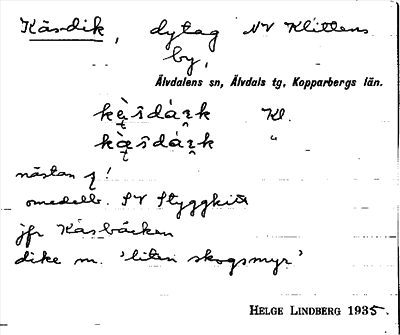 Kåsdik, dytag NV Klittens
by,
Älvdalens sn, Älvdals tg, Kopparbergs län.
Kl.
"
nästan !
omedelb. SV Styggkitt
jfr Kåsbäcken
dike m. 'liten skogsmyr'
HELGE LINDBERG 1935.